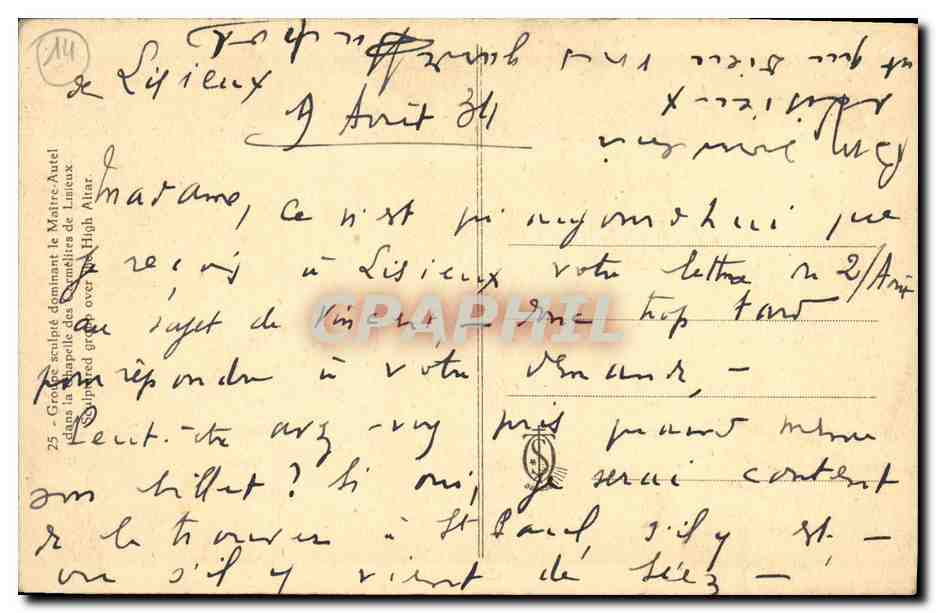 14
de Lisieux
9 Août 34
Madame, ce n'est qu'aujourd'hui que
je reçois à Lisieux votre lettre du 2/Août
au sujet de Vincent, – donc trop tard
pour répondre à votre demande, –
Peut-être avez-vous pris quand même
son billet? Si oui, je serai content
de le trouver à St Paul, s'il y est, –
ou s'il y vient de Séez –
25 - Groupe sculpté dominant le Maître-Autel
dans la Chapelle des Carmélites de Lisieux
Sculptured group over the High Altar.
CPAPHIL